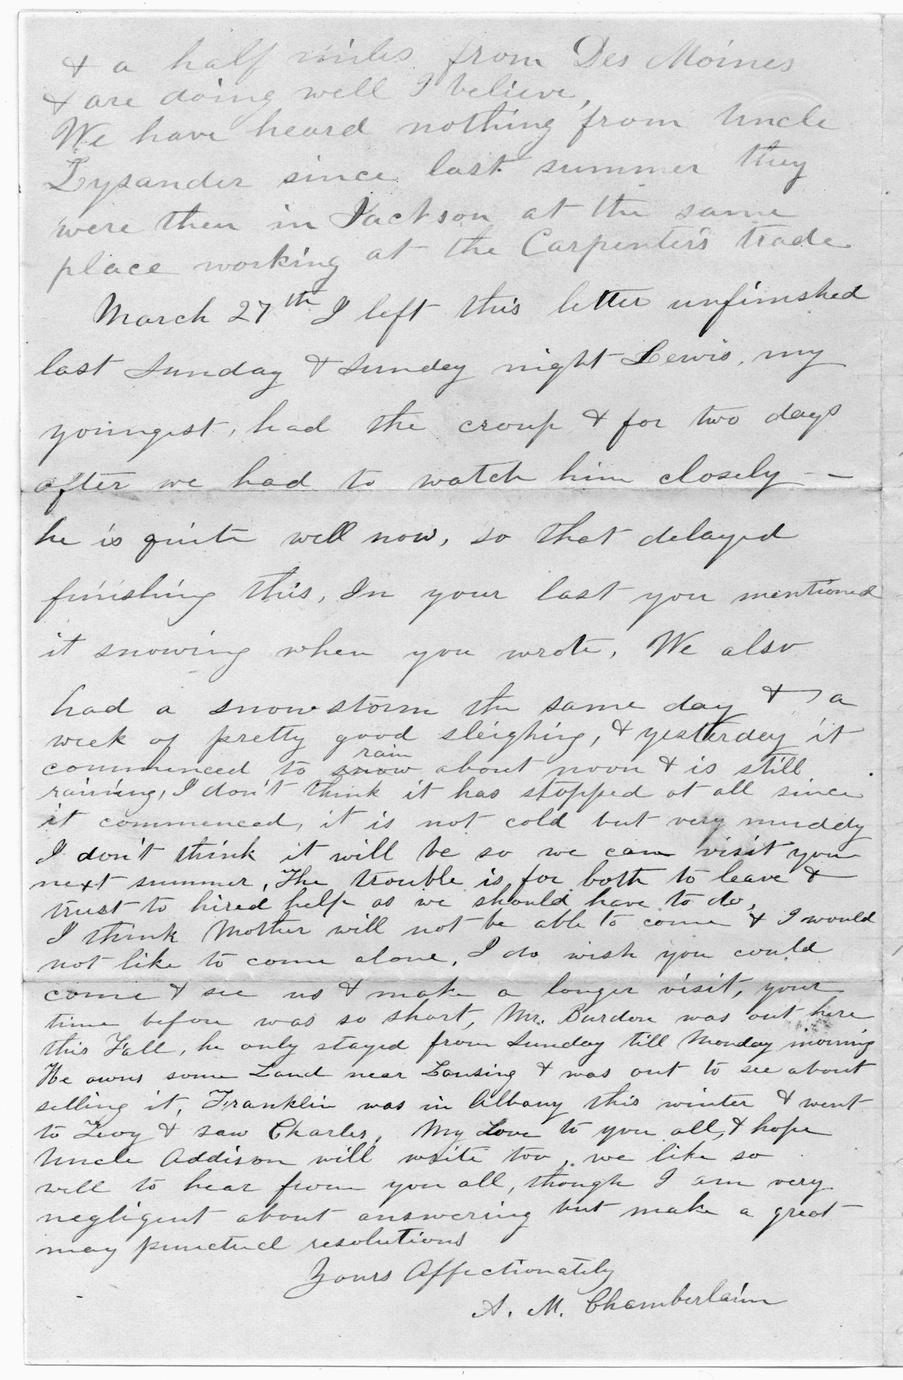 & a half miles from Des Moines
& are doing well I believe,
We have heard nothing from Uncle
Lysander since last summer they
were then in Jackson at the same
place working at the Carpenter's trade
March 27th I left this letter unfinished
last Sunday & Sunday night Lewis, my
youngest, had the croup & for two days
after we had to watch him closely —
he is quite well now, so that delayed
finishing this, In your last you mentioned
it snowing when you wrote, We also
had a snowstorm the same day & a
week of pretty good sleighing, & yesterday it
commenced to snow rain about noon & is still
raining, I don't think it has stopped at all since
it commenced, it is not cold but very muddy
I don't think it will be so we can visit you
next summer, The trouble is for both to leave &
trust to hired help as we should have to do,
I think Mother will not be able to come & I would
not like to come alone, I do wish you could
come & see us & make a longer visit, your
time before was so short, Mr. Burdon was out here
this Fall, he only stayed from Sunday till Monday morning
He owns some Land near Lansing & was out to see about
selling it, Franklin was in Albany this winter & went
to Troy & saw Charles, My Love to you all, & hope
Uncle Addison will write too, we like so
well to hear from you all, though I am very
negligent about answering but make a great
may punctual resolutions
Yours Affectionately
A. M. Chamberlain